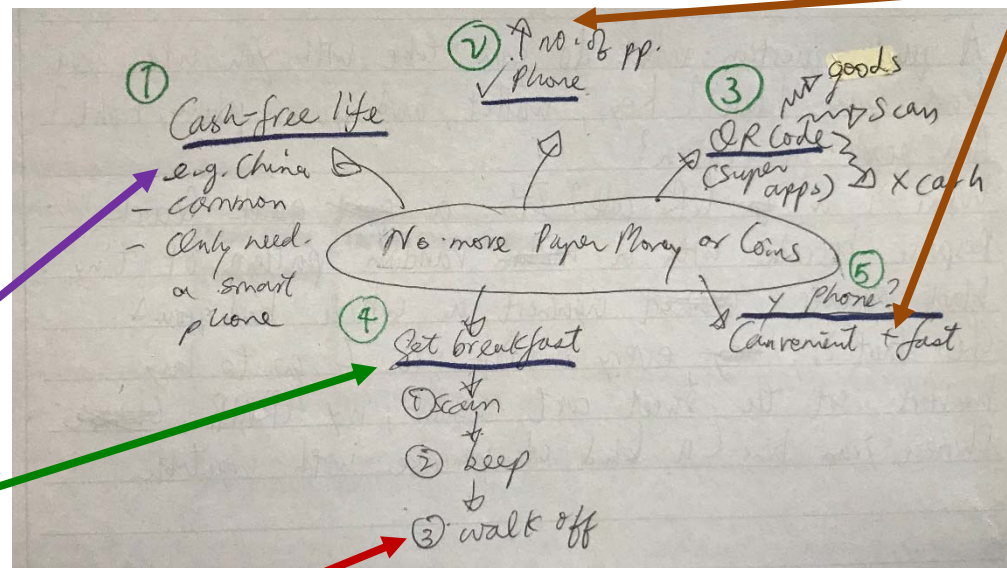 ①
Cash-free life
e.g. China
- common
- Only need
a smart
phone
②
↑ no. of pp.
✓ Phone
③
goods
scan
QR Code
(super
apps)
x cash
No more Paper Money or Coins
④
Get breakfast
① scan
② beep
③ walk off
⑤
y phone?
Convenient + fast